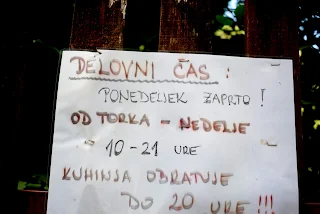 DELOVNI ČAS :
PONEDELJEK ZAPRTO !
OD TORKA - NEDELJE
10-21 URE
KUHINJA OBRATUJE
DO 20 URE !!!